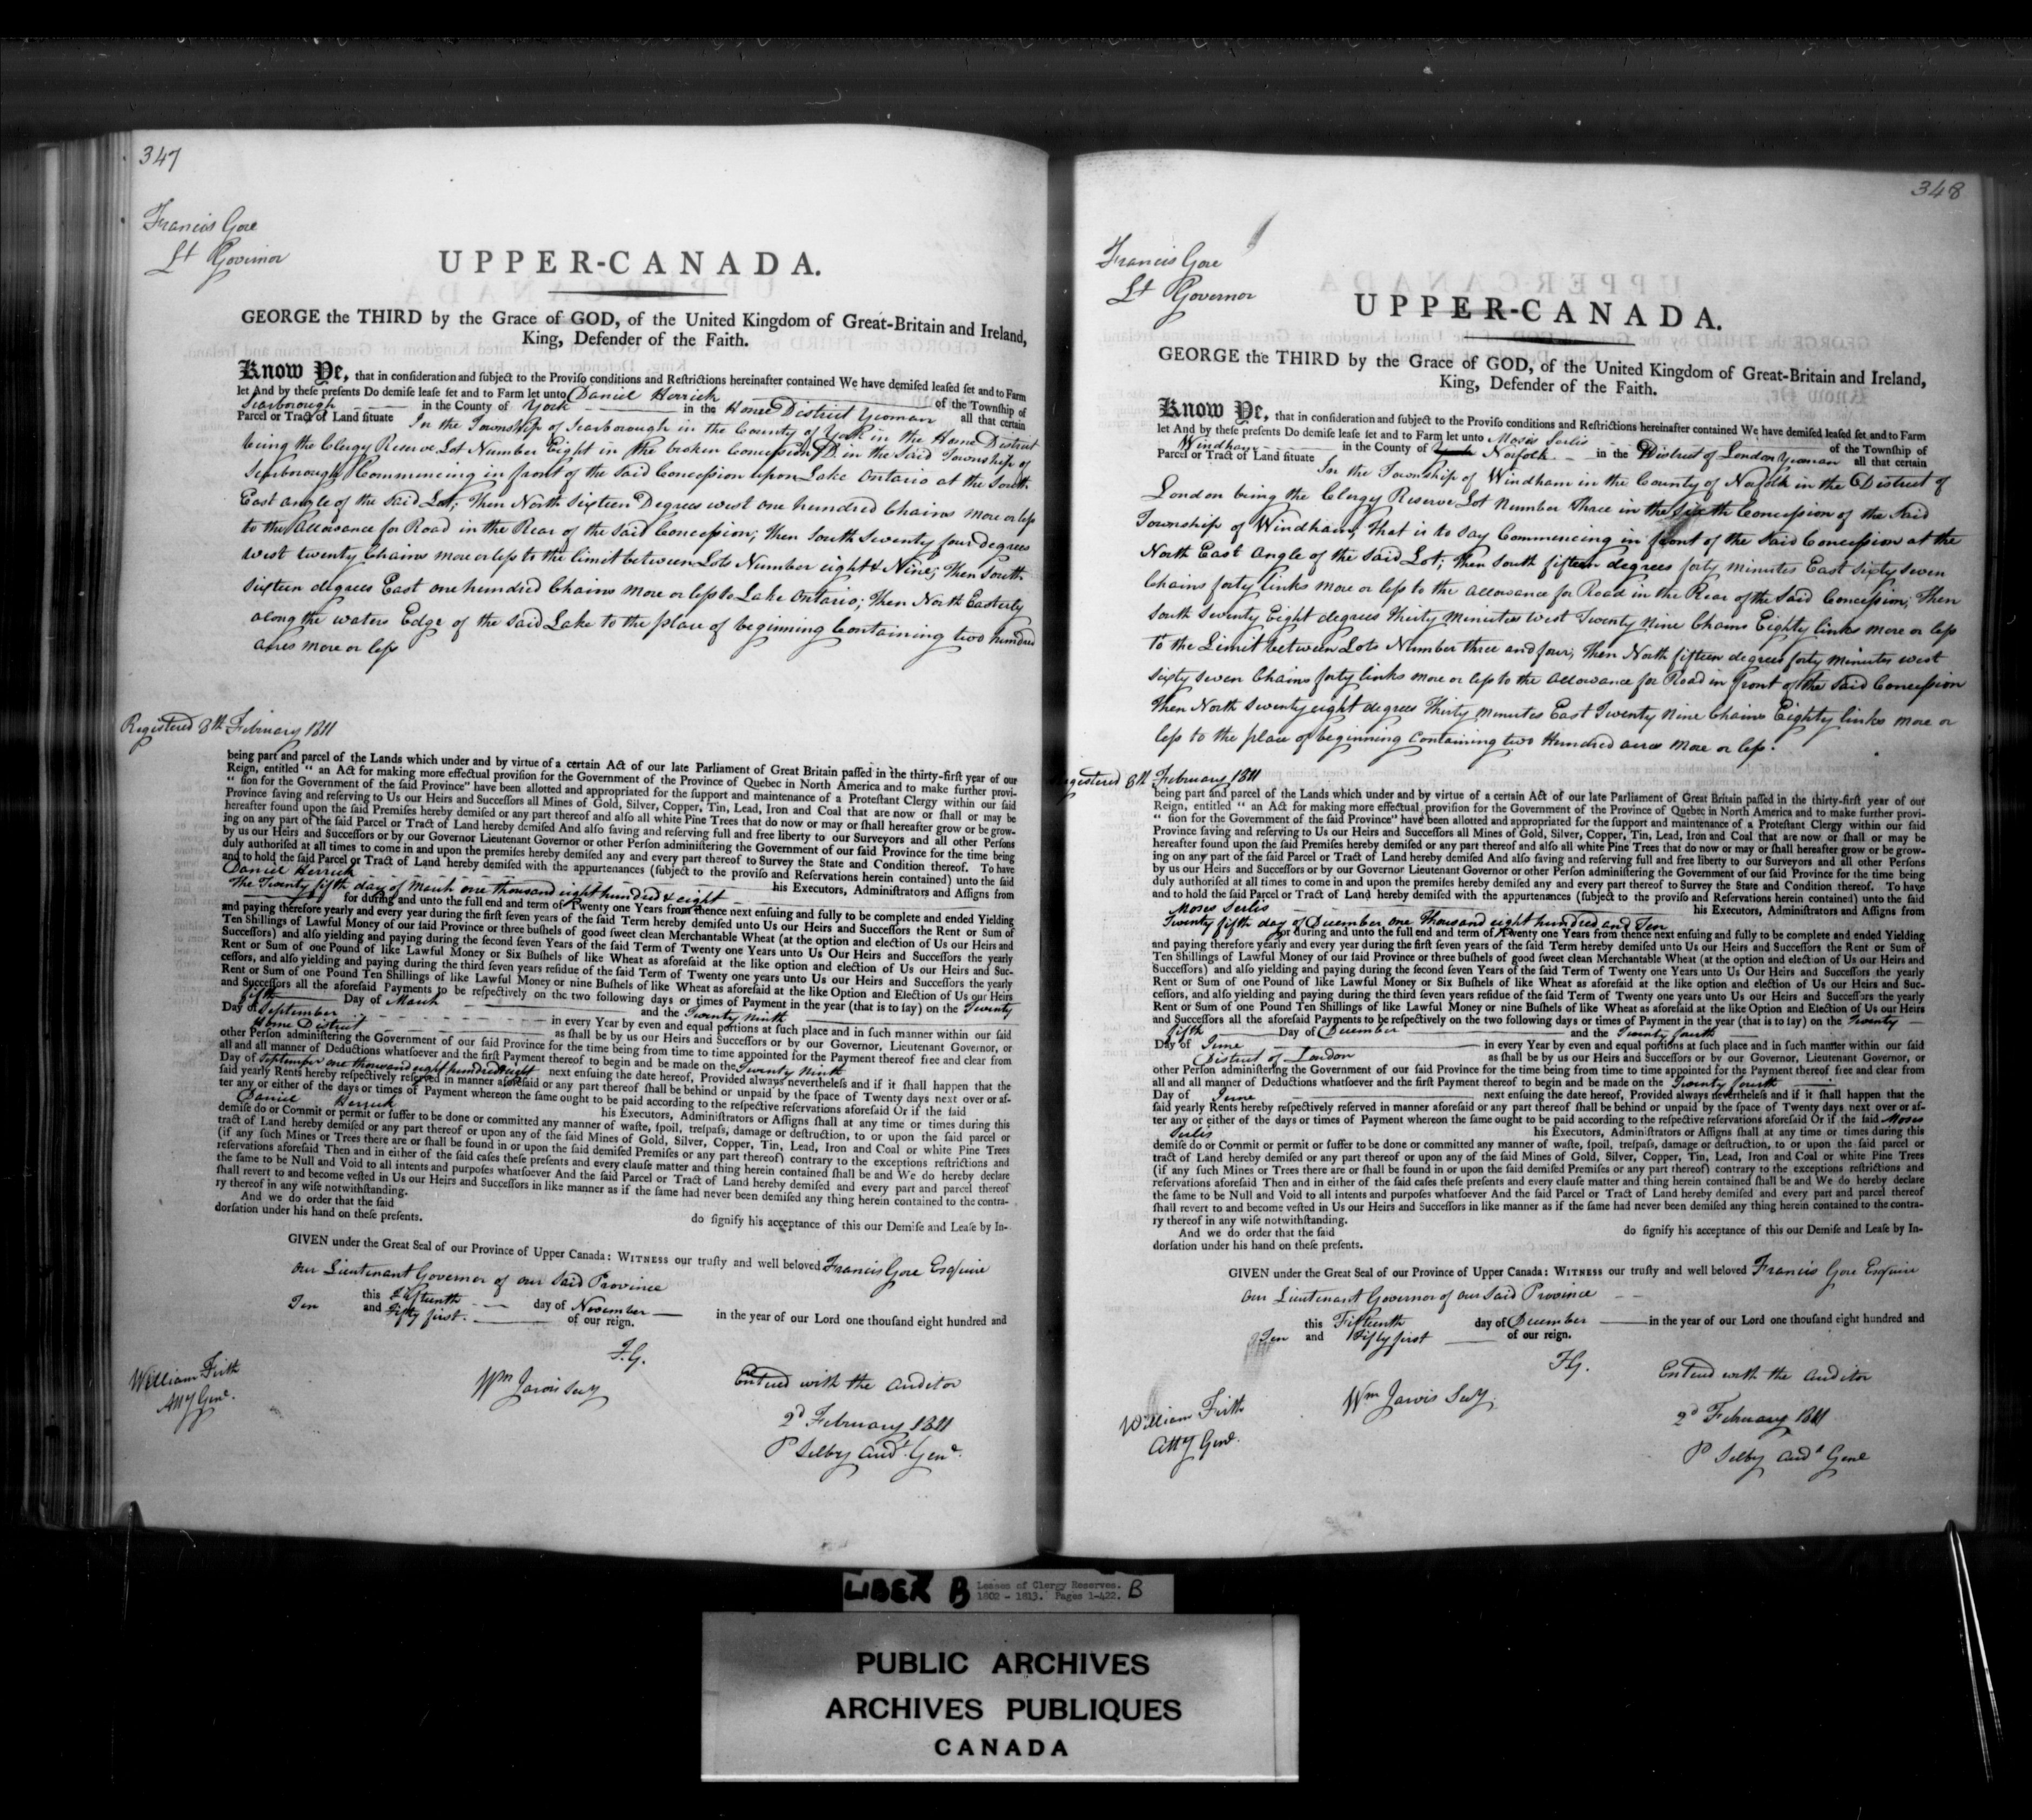 347
Francis Gore
Lt Governor
UPPER-CANADA.
GEORGE the THIRD by the Grace of GOD, of the United Kingdom of Great-Britain and Ireland,
King, Defender of the Faith.
Know Ye, that in consideration and subject to the Proviso conditions and Restrictions hereinafter contained We have demised leased set and to Farm
let And by these presents Do demise lease set and to Farm let unto Daniel Herrick of the Township of
Scarborough in the County of York in the Home District Yeoman all that certain
Parcel or Tract of Land situate In the Township of Scarborough in the County of York in the Home District
being the Clergy Reserve Lot Number Eight in the broken Concession D. in the Said Township of
Scarborough Commencing in front of the Said Concession upon Lake Ontario at the South
East angle of the Said Lot; Then North Sixteen Degrees west one hundred Chains more or less
to the allowance for Road in the Rear of the Said Concession; Then South Seventy four Degrees
west twenty Chains more or less to the limit between Lots Number eight & Nine; Then South
Sixteen degrees East one hundred Chains more or less to Lake Ontario; Then North Easterly
along the waters Edge of the Said Lake to the place of beginning Containing two hundred
acres more or less
Registered 8th February 1811
being part and parcel of the Lands which under and by virtue of a certain Act of our late Parliament of Great Britain passed in the thirty-first year of our
Reign, entitled “ an Act for making more effectual provision for the Government of the Province of Quebec in North America and to make further provi-
“ sion for the Government of the said Province” have been allotted and appropriated for the support and maintenance of a Protestant Clergy within our said
Province saving and reserving to Us our Heirs and Successors all Mines of Gold, Silver, Copper, Tin, Lead, Iron and Coal that are now or shall or may be
hereafter found upon the said Premises hereby demised or any part thereof and also all white Pine Trees that do now or may or shall hereafter grow or be grow-
ing on any part of the said Parcel or Tract of Land hereby demised And also saving and reserving full and free liberty to our Surveyors and all other Persons
by us our Heirs and Successors or by our Governor Lieutenant Governor or other Person administering the Government of our said Province for the time being
duly authorised at all times to come in and upon the premises hereby demised any and every part thereof to Survey the State and Condition thereof. To have
and to hold the said Parcel or Tract of Land hereby demised with the appurtenances (subject to the proviso and Reservations herein contained) unto the said
Daniel Herrick his Executors, Administrators and Assigns from
The Twenty fifth day of March one thousand eight hundred & eight
for during and unto the full end and term of Twenty one Years from thence next ensuing and fully to be complete and ended Yielding
and paying therefore yearly and every year during the first seven years of the said Term hereby demised unto Us our Heirs and Successors the Rent or Sum of
Ten Shillings of Lawful Money of our said Province or three bushels of good sweet clean Merchantable Wheat (at the option and election of Us our Heirs and
Successors) and also yielding and paying during the second seven Years of the said Term of Twenty one Years unto Us Our Heirs and Successors the yearly
Rent or Sum of one Pound of like Lawful Money or Six Bushels of like Wheat as aforesaid at the like option and election of Us our Heirs and Suc-
cessors, and also yielding and paying during the third seven years residue of the said Term of Twenty one years unto Us our Heirs and Successors the yearly
Rent or Sum of one Pound Ten Shillings of like Lawful Money or nine Bushels of like Wheat as aforesaid at the like Option and Election of Us our Heirs
and Successors all the aforesaid Payments to be respectively on the two following days or times of Payment in the year (that is to say) on the Twenty
fifth Day of March and the Twenty Ninth
Day of September in every Year by even and equal portions at such place and in such manner within our said
Home District as shall be by us our Heirs and Successors or by our Governor, Lieutenant Governor, or
other Person administering the Government of our said Province for the time being from time to time appointed for the Payment thereof free and clear from
all and all manner of Deductions whatsoever and the first Payment thereof to begin and be made on the Twenty Ninth
Day of September one thousand eight hundred & eight next ensuing the date hereof, Provided always nevertheless and if it shall happen that the
said yearly Rents hereby respectively reserved in manner aforesaid or any part thereof shall be behind or unpaid by the space of Twenty days next over or af-
ter any or either of the days or times of Payment whereon the same ought to be paid according to the respective reservations aforesaid Or if the said
Daniel Herrick his Executors, Administrators or Assigns shall at any time or times during this
demise do or Commit or permit or suffer to be done or committed any manner of waste, spoil, trespass, damage or destruction, to or upon the said parcel or
tract of Land hereby demised or any part thereof or upon any of the said Mines of Gold, Silver, Copper, Tin, Lead, Iron and Coal or white Pine Trees
(if any such Mines or Trees there are or shall be found in or upon the said demised Premises or any part thereof) contrary to the exceptions restrictions and
reservations aforesaid Then and in either of the said cases these presents and every clause matter and thing herein contained shall be and We do hereby declare
the same to be Null and Void to all intents and purposes whatsoever And the said Parcel or Tract of Land hereby demised and every part and parcel thereof
shall revert to and become vested in Us our Heirs and Successors in like manner as if the same had never been demised any thing herein contained to the contra-
ry thereof in any wise notwithstanding.
And we do order that the said do signify his acceptance of this our Demise and Lease by In-
dorsation under his hand on these presents.
GIVEN under the Great Seal of our Province of Upper Canada: WITNESS our trusty and well beloved Francis Gore Esquire
our Lieutenant Governor of our Said Province
this Fifteenth day of November in the year of our Lord one thousand eight hundred and
Ten and Fifty first. of our reign.
F.G.
William Firth
Atty Genl.
Wm Jarvis Secy
Entered with the Auditor
2d February 1811
P Selby Audr. Genl.
348
Francis Gore
Lt Governor
UPPER-CANADA.
GEORGE the THIRD by the Grace of GOD, of the United Kingdom of Great-Britain and Ireland,
King, Defender of the Faith.
Know Ye, that in consideration and subject to the Proviso conditions and Restrictions hereinafter contained We have demised leased set and to Farm
let And by these presents Do demise lease set and to Farm let unto Moses Serlis of the Township of
Windham in the County of York Norfolk in the District of London Yeoman all that certain
Parcel or Tract of Land situate In the Township of Windham in the County of Norfolk in the District of
London being the Clergy Reserve Lot Number Three in the Sixth Concession of the Said
Township of Windham, That is to Say Commencing in front of the Said Concession at the
North East Angle of the Said Lot; Then South fifteen degrees forty minutes East Sixty Seven
Chains forty links more or less to the allowance for Road in the Rear of the Said Concession; Then
South Seventy Eight degrees Thirty Minutes west Twenty Nine Chains Eighty links more or less
to the Limit between Lots Number three and four; Then North fifteen degrees forty minutes west
Sixty Seven Chains forty links more or less to the allowance for Road in front of the Said Concession
Then North Seventy eight degrees Thirty minutes East Twenty Nine Chains Eighty links more or
less to the place of beginning Containing two Hundred acres more or less.
Registered 8th February 1811
being part and parcel of the Lands which under and by virtue of a certain Act of our late Parliament of Great Britain passed in the thirty-first year of our
Reign, entitled “ an Act for making more effectual provision for the Government of the Province of Quebec in North America and to make further provi-
“ sion for the Government of the said Province” have been allotted and appropriated for the support and maintenance of a Protestant Clergy within our said
Province saving and reserving to Us our Heirs and Successors all Mines of Gold, Silver, Copper, Tin, Lead, Iron and Coal that are now or shall or may be
hereafter found upon the said Premises hereby demised or any part thereof and also all white Pine Trees that do now or may or shall hereafter grow or be grow-
ing on any part of the said Parcel or Tract of Land hereby demised And also saving and reserving full and free liberty to our Surveyors and all other Persons
by us our Heirs and Successors or by our Governor Lieutenant Governor or other Person administering the Government of our said Province for the time being
duly authorised at all times to come in and upon the premises hereby demised any and every part thereof to Survey the State and Condition thereof. To have
and to hold the said Parcel or Tract of Land hereby demised with the appurtenances (subject to the proviso and Reservations herein contained) unto the said
Moses Serlis his Executors, Administrators and Assigns from
Twenty fifth day of December one Thousand eight hundred and Ten
for during and unto the full end and term of Twenty one Years from thence next ensuing and fully to be complete and ended Yielding
and paying therefore yearly and every year during the first seven years of the said Term hereby demised unto Us our Heirs and Successors the Rent or Sum of
Ten Shillings of Lawful Money of our said Province or three bushels of good sweet clean Merchantable Wheat (at the option and election of Us our Heirs and
Successors) and also yielding and paying during the second seven Years of the said Term of Twenty one Years unto Us Our Heirs and Successors the yearly
Rent or Sum of one Pound of like Lawful Money or Six Bushels of like Wheat as aforesaid at the like option and election of Us our Heirs and Suc-
cessors, and also yielding and paying during the third seven years residue of the said Term of Twenty one years unto Us our Heirs and Successors the yearly
Rent or Sum of one Pound Ten Shillings of like Lawful Money or nine Bushels of like Wheat as aforesaid at the like Option and Election of Us our Heirs
and Successors all the aforesaid Payments to be respectively on the two following days or times of Payment in the year (that is to say) on the Twenty
fifth Day of December and the Twenty fourth
Day of June in every Year by even and equal portions at such place and in such manner within our said
District of London as shall be by us our Heirs and Successors or by our Governor, Lieutenant Governor, or
other Person administering the Government of our said Province for the time being from time to time appointed for the Payment thereof free and clear from
all and all manner of Deductions whatsoever and the first Payment thereof to begin and be made on the Twenty fourth
Day of June next ensuing the date hereof, Provided always nevertheless and if it shall happen that the
said yearly Rents hereby respectively reserved in manner aforesaid or any part thereof shall be behind or unpaid by the space of Twenty days next over or af-
ter any or either of the days or times of Payment whereon the same ought to be paid according to the respective reservations aforesaid Or if the said Moses
Serlis his Executors, Administrators or Assigns shall at any time or times during this
demise do or Commit or permit or suffer to be done or committed any manner of waste, spoil, trespass, damage or destruction, to or upon the said parcel or
tract of Land hereby demised or any part thereof or upon any of the said Mines of Gold, Silver, Copper, Tin, Lead, Iron and Coal or white Pine Trees
(if any such Mines or Trees there are or shall be found in or upon the said demised Premises or any part thereof) contrary to the exceptions restrictions and
reservations aforesaid Then and in either of the said cases these presents and every clause matter and thing herein contained shall be and We do hereby declare
the same to be Null and Void to all intents and purposes whatsoever And the said Parcel or Tract of Land hereby demised and every part and parcel thereof
shall revert to and become vested in Us our Heirs and Successors in like manner as if the same had never been demised any thing herein contained to the contra-
ry thereof in any wise notwithstanding.
And we do order that the said do signify his acceptance of this our Demise and Lease by In-
dorsation under his hand on these presents.
GIVEN under the Great Seal of our Province of Upper Canada: WITNESS our trusty and well beloved Francis Gore Esquire
our Lieutenant Governor of our Said Province
this Fifteenth day of December in the year of our Lord one thousand eight hundred and
Ten and Fifty first of our reign.
F.G.
William Firth
Atty Genl.
Wm Jarvis Secy.
Entered with the Auditor
2d February 1811
P Selby Audr Genl
LIBER B Leases of Clergy Reserves. B
1802 - 1813. Pages 1-422.
PUBLIC ARCHIVES
ARCHIVES PUBLIQUES
CANADA